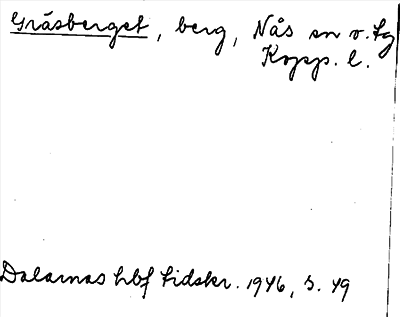 Gräsberget, berg, Nås sn o. fg
Kopp. l.
Dalarnas hbf tidskr. 1946, s. 49